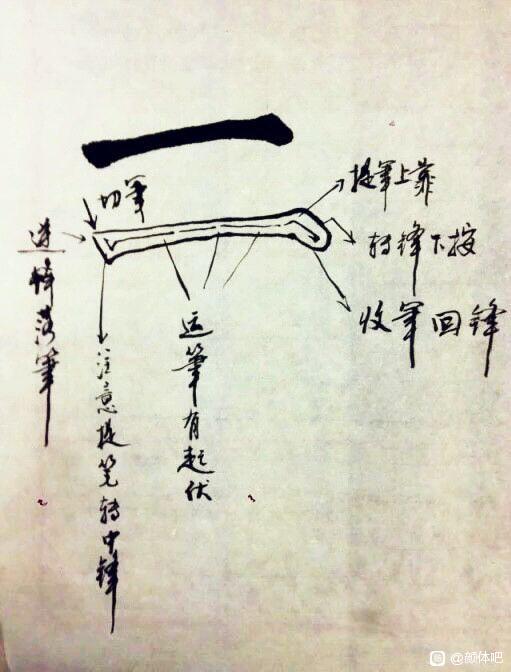 一
切筆
逆锋落筆
注意提笔转中锋
运筆有起伏
提筆上靠
转锋下按
收筆回锋
@颜体吧